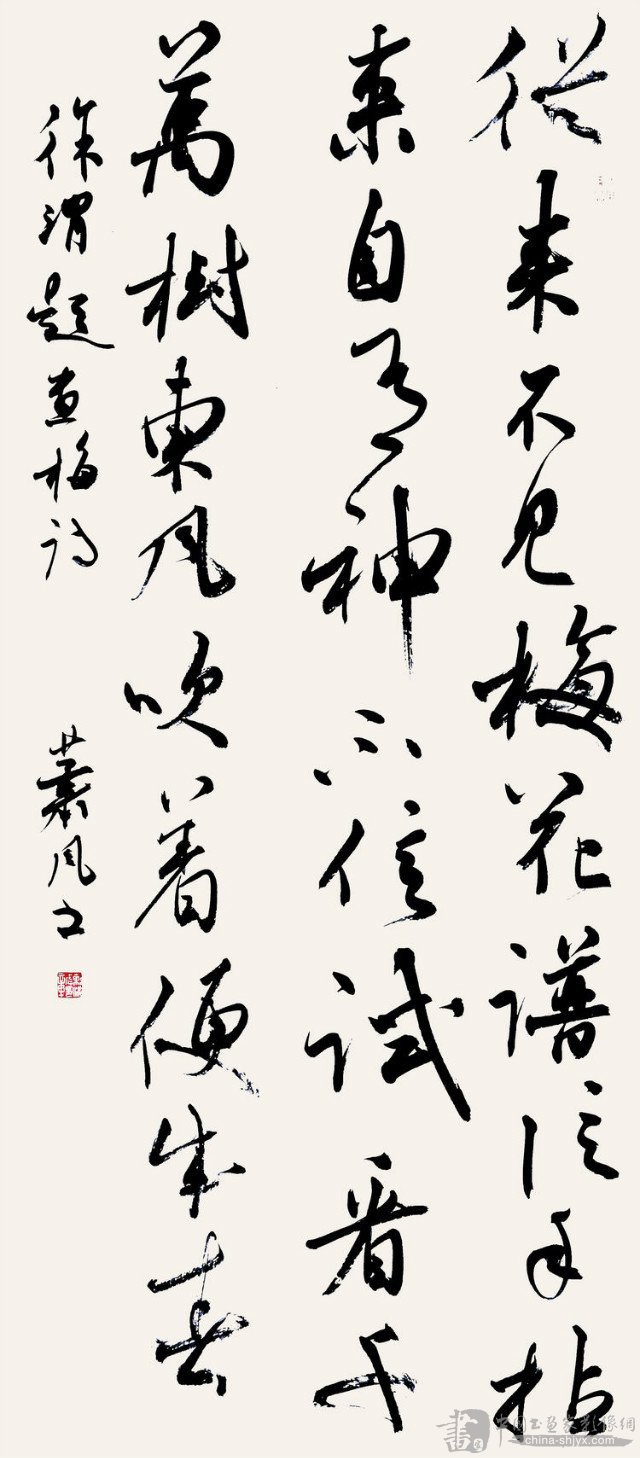 從来不見梅花譜信手拈
来自有神不信試看千
萬樹東風吹着便成春
徐渭題画梅詩 蕭風书
書 中国书画家影像網
china-shjyx.com